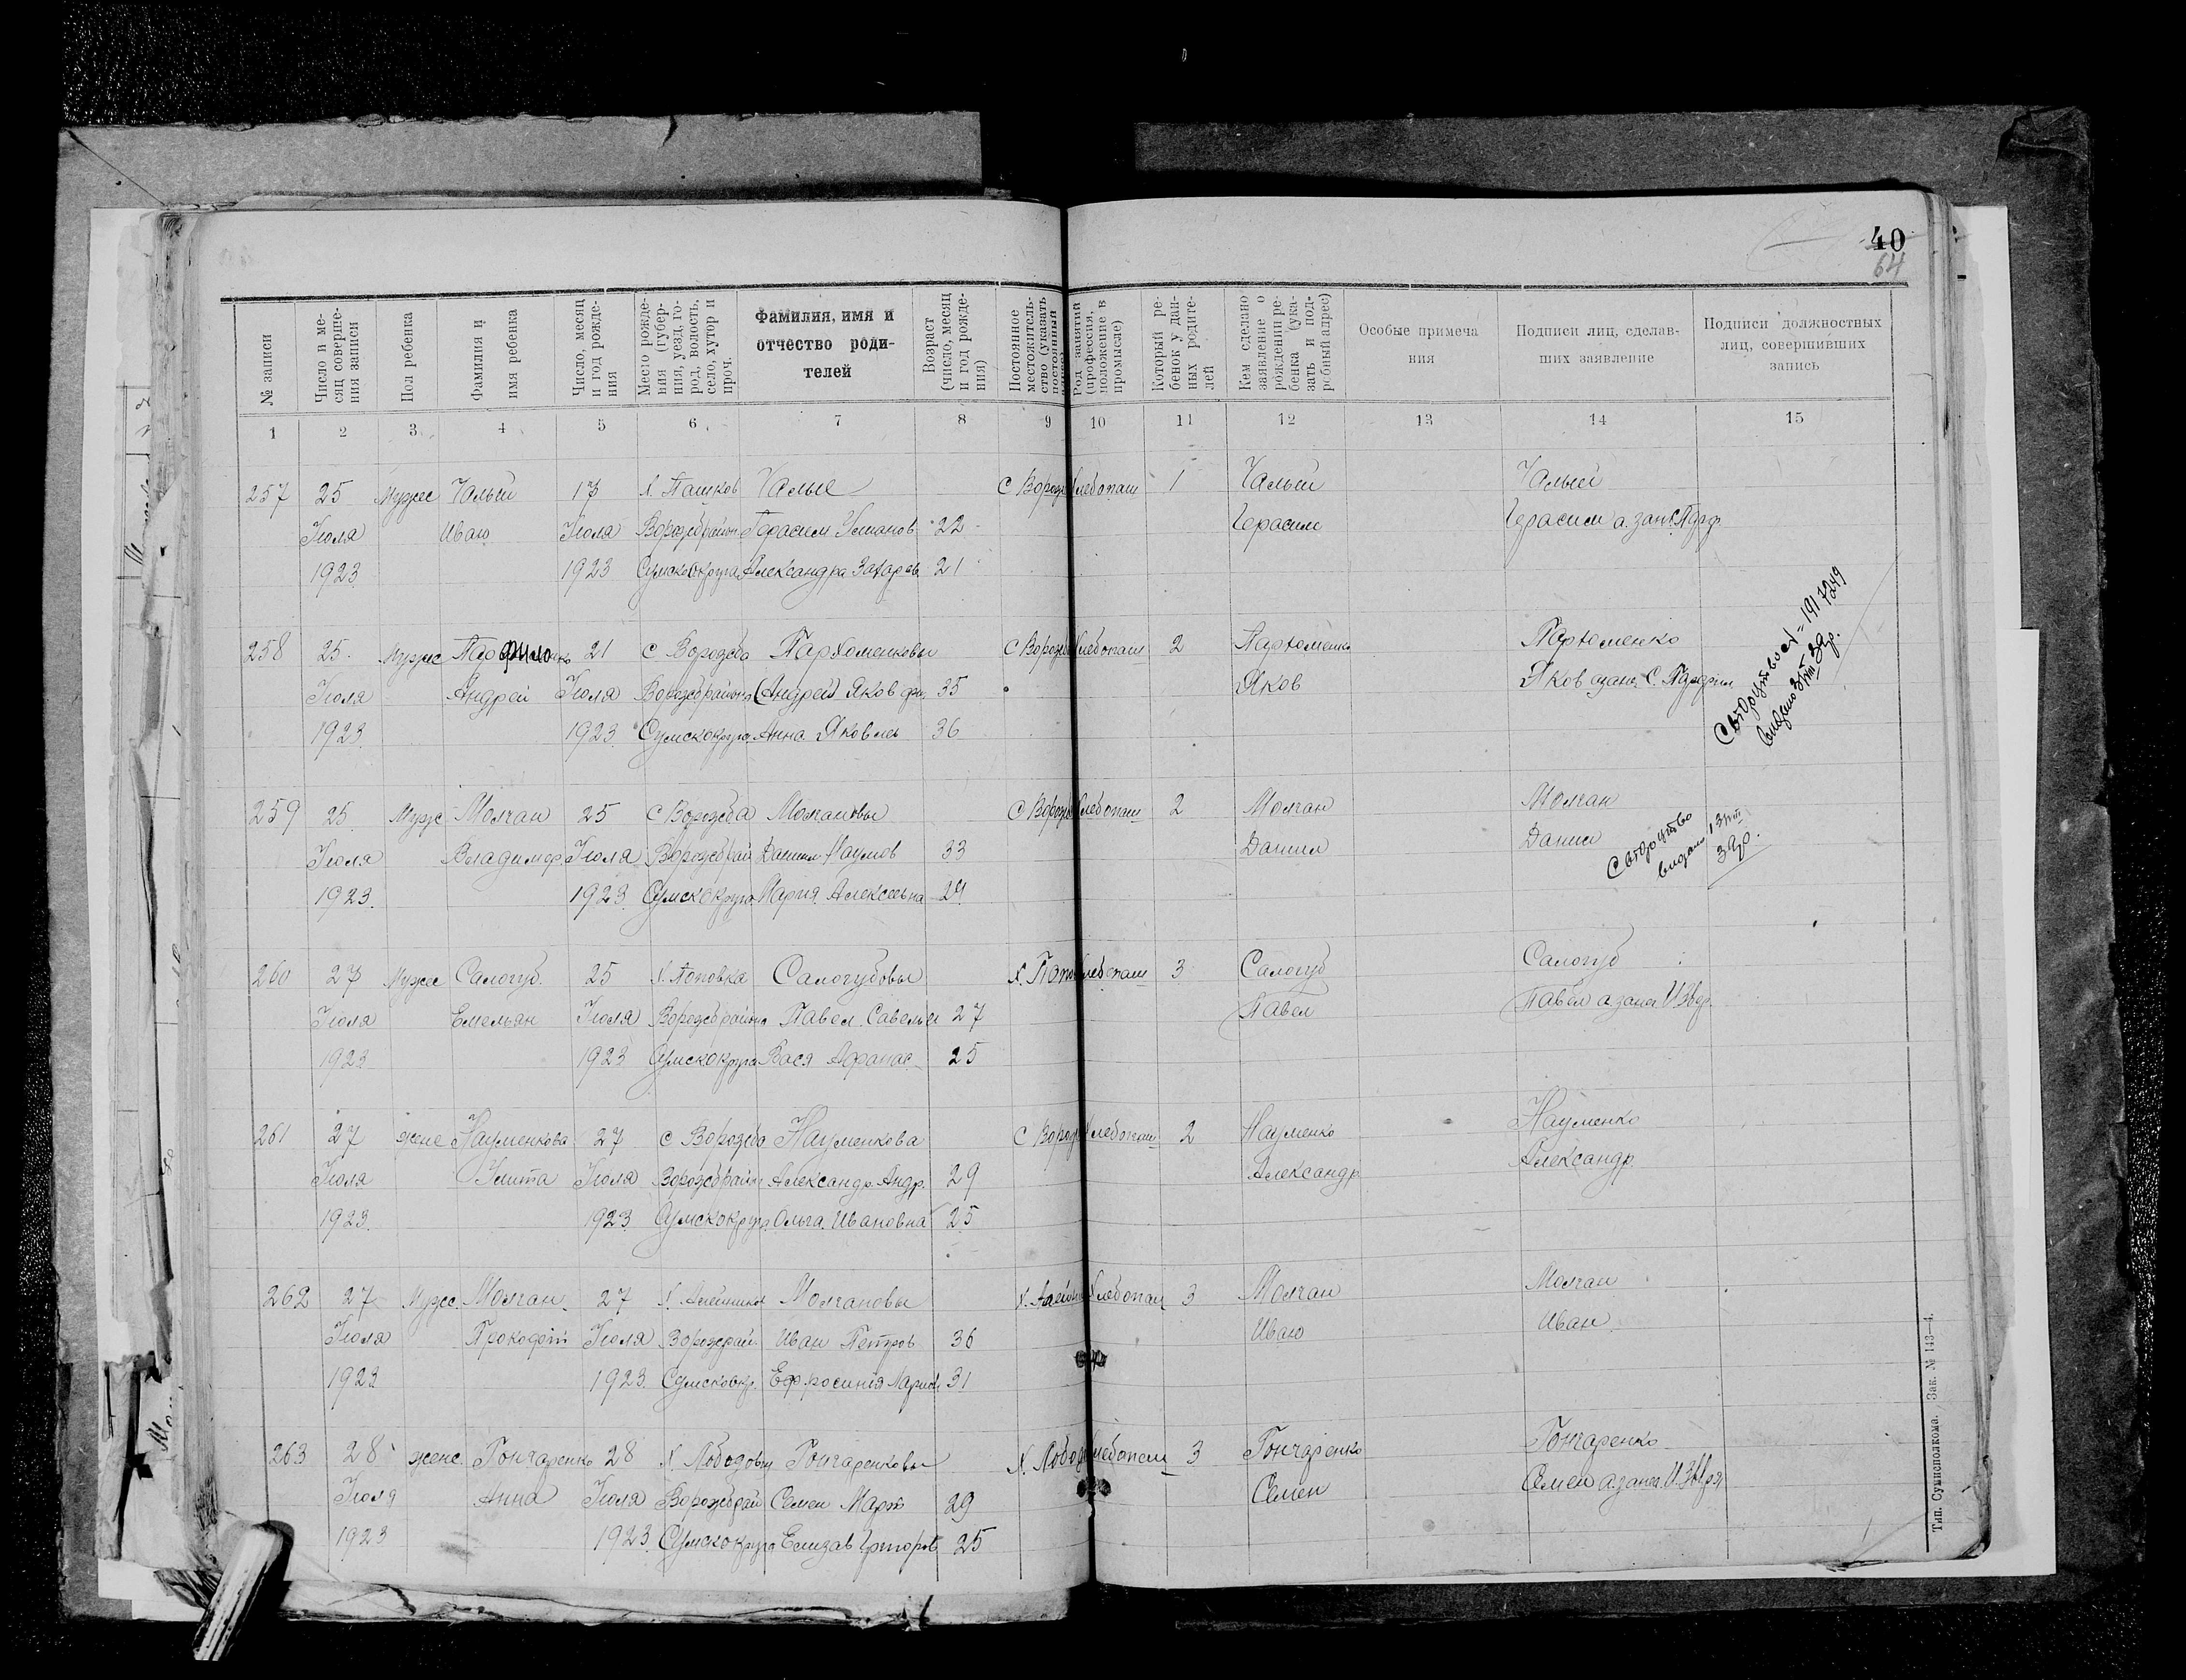 40
64
№ записи
Число и месяц совершения записи
Пол ребенка
Фамилия и имя ребенка
Число, месяц и год рождения
Место рождения (губерния, уезд, город, волость, село, хутор и проч.
Фамилия, имя и отчество родителей
Возраст (число, месяц и год рождения)
Постоянное местожительство (указать постоянный
Род занятий (профессия, положение в промысле)
Который ребенок у данных родителей
Кем сделано заявление о рождении ребенка (указать и подробный адрес)
Особые примечания
Подписи лиц, сделавших заявление
Подписи должностных лиц, совершивших запись
1 2 3 4 5 6 7 8 9 10 11 12 13 14 15
257 25 Мужс Чалый 17 х. Пашков Чалые СВорожб Хлебопаш 1 Чалый Чалый
Июля Иван Июля Ворожбрайон Герасим 22 Герасим Герасим а за
1923 1923 Сумскокруга Александра Захаров 21
258 25 Мужс 21 с Ворожба Пархоменковы С Ворожб Хлебопаш 2 Пархоменко Пархоменко
Июля Андрей Июля Ворожбрайона (Андрей) Яков 35 Яков Яков
1923 1923 Сумскокруга Анна Яковлев 36
259 25 Мужс Молчан 25 с Ворожба Молчановы С Ворожб Хлебопаш 2 Молчан Молчан
Июля Владимир Июля Ворожбрай Данил Наумов 33 Данил Данил
1923 1923 Сумскокруга Мария Алексеевна 29
260 27 Мужс Салогуб 25 х. Поповка Салогубовы х. Попов Хлебопаш 3 Салогуб Салогуб
Июля Емельян Июля Ворожбрайона Павел Савельев 27 Павел Павел
1923 1923 Сумскокруга Вася Афанас 25
261 27 женс Науменкова 27 с Ворожба Науменкова С Ворож Хлебопаш 2 Науменко Науменко
Июля Улита Июля Ворожбрайон Александр Андр. 29 Александр Александр
1923 1923 Сумскокруга Ольга Ивановна 25
262 27 Мужс Молчан 27 х. Алейников Молчановы х. Алейн Хлебопаш 3 Молчан Молчан
Июля Прокофий Июля Ворожрай Иван Петров 36 Иван Иван
1923 1923 Сумскокр. Ефросиния 31
263 28 женс Гончаренко 28 х. Лободовы Гончаренковы х. Лобод Хлебопаш 3 Гончаренко Гончаренко
Июля Анна Июля Ворожбрай Семен Март 29 Семен Семен
1923 1923 Сумскокруга Елизав Григоров 25
Тип. Сумисполкома. Зак. № 143—4.